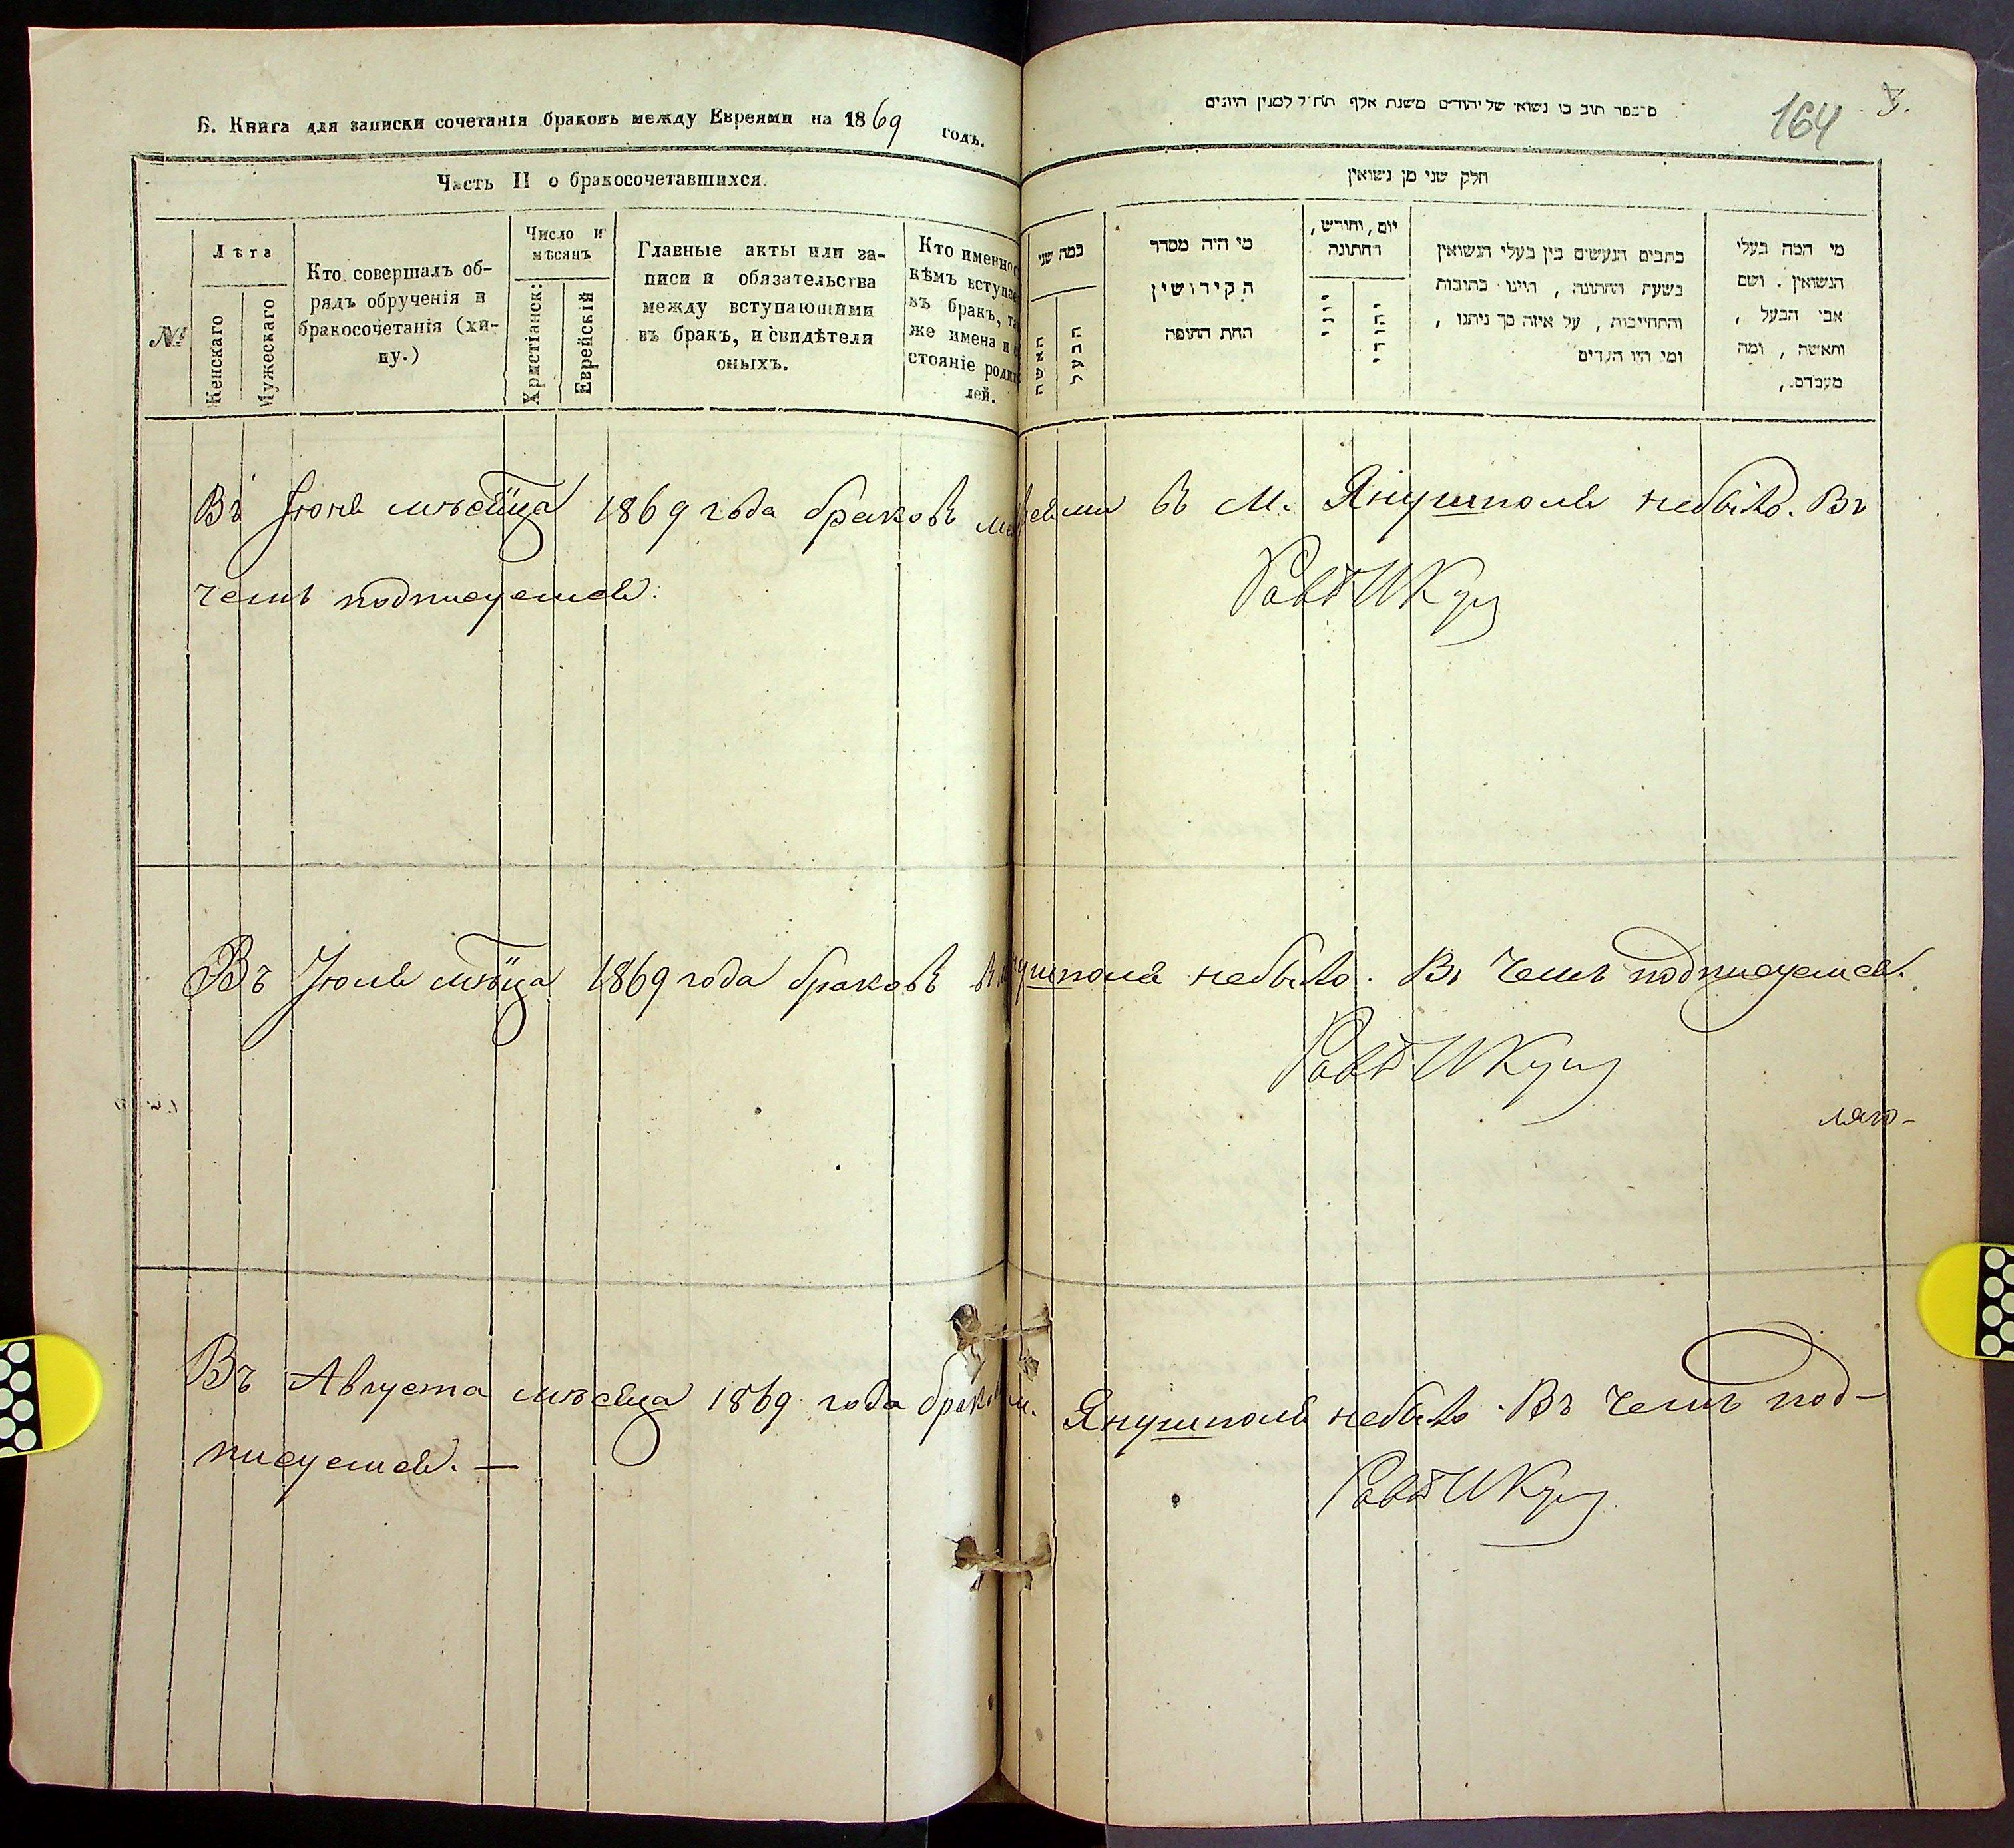 Б. Книга для записки сочетанія браковъ между Евреями на 1869 годъ.
Часть II о бракосочетавшихся.
№
Лѣта
Женскаго
Мужескаго
Кто совершалъ об-
рядъ обрученія и
бракосочетанія (хи-
пу.)
Число и
мѣсяцъ
Христіанск:
Еврейскій
Главные акты или за-
писи и обязательства
между вступающими
въ бракъ, и свидѣтели
оныхъ.
Кто именно
кѣмъ вступа
въ бракъ, та
же имена и
стояніе роди
лей.
164
חלק שני מן נשואין
כמה שני
האשה
הבעל
מי היה מסדר
הקידושין
תחת החופה
יום, וחודש,
החתונה
יוני
יהודי
כתבים הנעשים בין בעלי הנשואין
בשעת החתונה, היינו כתובות
והתחייבות, על איזה סך ניתנו,
ומי היו העדים
מי המה בעלי
הנשואין. ושם
אבי הבעל,
והאשה, ומה
מעמדם,
Въ Іюнѣ мѣсяца 1869 года браковъ ме евями въ М. Янушполѣ небыло. Въ
чемъ подписуемся.
Рав
Въ Іюлѣ мѣсяца 1869 года браковъ ушполѣ небыло. Въ чемъ подписуемся.
Рав
Въ Августа мѣсяца 1869 года брако м. Янушполѣ небыло. Въ чемъ под-
писуемся. —
Рав